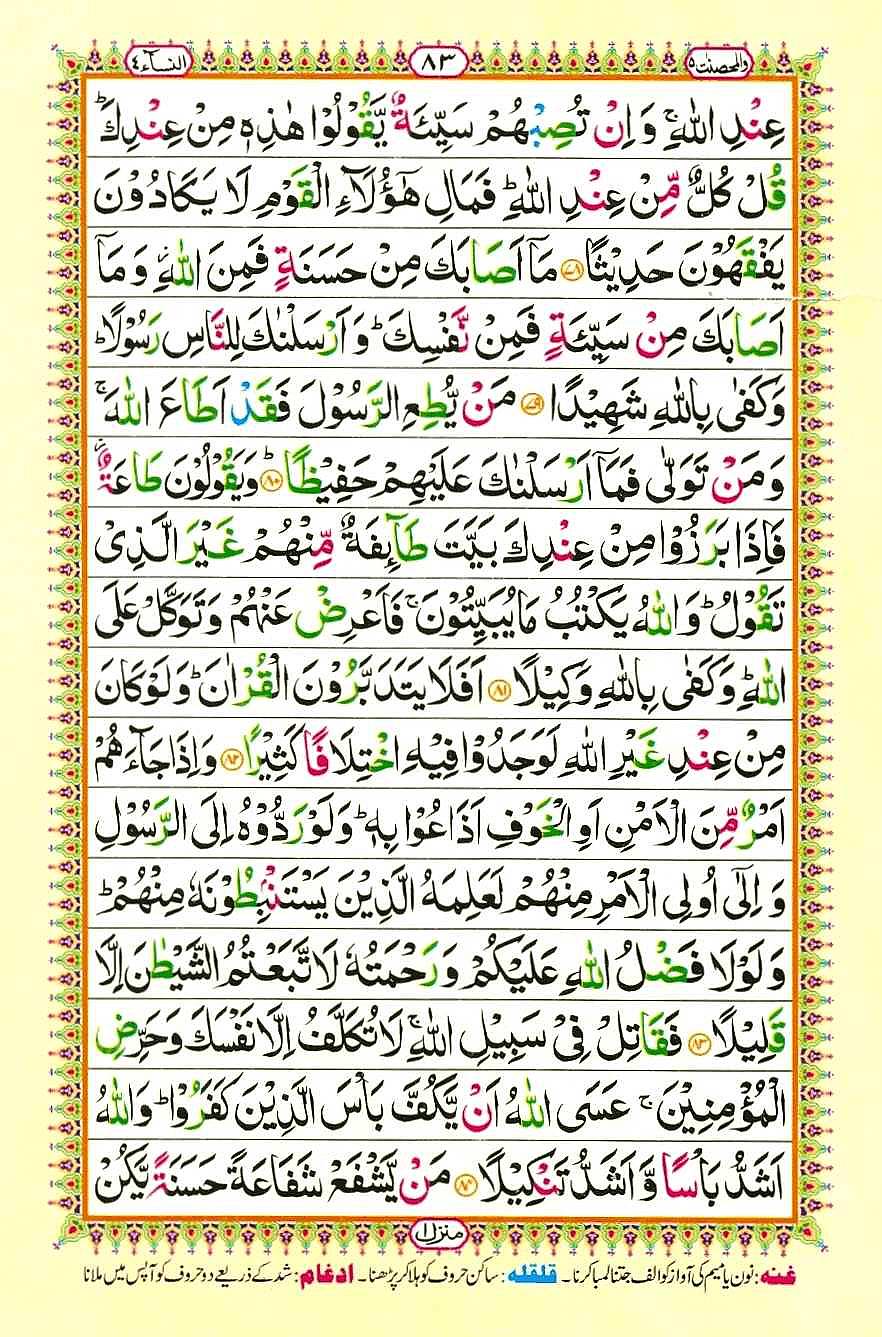 والمحصنت ۵ ۸۳ النسآء ۴
عِنْدِ اللّٰهِ ۚ وَ اِنْ تُصِبْهُمْ سَيِّئَةٌ يَّقُوْلُوْا هٰذِهٖ مِنْ عِنْدِكَ ؕ
قُلْ كُلٌّ مِّنْ عِنْدِ اللّٰهِ ؕ فَمَالِ هٰۤؤُلَآءِ الْقَوْمِ لَا يَكَادُوْنَ
يَفْقَهُوْنَ حَدِيْثًا ﴿۷۸﴾ مَاۤ اَصَابَكَ مِنْ حَسَنَةٍ فَمِنَ اللّٰهِ ؗ وَ مَاۤ
اَصَابَكَ مِنْ سَيِّئَةٍ فَمِنْ نَّفْسِكَ ؕ وَ اَرْسَلْنٰكَ لِلنَّاسِ رَسُوْلًا ؕ
وَ كَفٰى بِاللّٰهِ شَهِيْدًا ﴿۷۹﴾ مَنْ يُّطِعِ الرَّسُوْلَ فَقَدْ اَطَاعَ اللّٰهَ ۚ
وَ مَنْ تَوَلّٰى فَمَاۤ اَرْسَلْنٰكَ عَلَيْهِمْ حَفِيْظًا ﴿۸۰﴾ؕ وَ يَقُوْلُوْنَ طَاعَةٌ ؗ
فَاِذَا بَرَزُوْا مِنْ عِنْدِكَ بَيَّتَ طَآئِفَةٌ مِّنْهُمْ غَيْرَ الَّذِىْ
تَقُوْلُ ؕ وَ اللّٰهُ يَكْتُبُ مَا يُبَيِّتُوْنَ ۚ فَاَعْرِضْ عَنْهُمْ وَ تَوَكَّلْ عَلَى
اللّٰهِ ؕ وَ كَفٰى بِاللّٰهِ وَكِيْلًا ﴿۸۱﴾ اَفَلَا يَتَدَبَّرُوْنَ الْقُرْاٰنَ ؕ وَ لَوْ كَانَ
مِنْ عِنْدِ غَيْرِ اللّٰهِ لَوَجَدُوْا فِيْهِ اخْتِلَافًا كَثِيْرًا ﴿۸۲﴾ وَ اِذَا جَآءَهُمْ
اَمْرٌ مِّنَ الْاَمْنِ اَوِ الْخَوْفِ اَذَاعُوْا بِهٖ ؕ وَ لَوْ رَدُّوْهُ اِلَى الرَّسُوْلِ
وَ اِلٰۤى اُولِى الْاَمْرِ مِنْهُمْ لَعَلِمَهُ الَّذِيْنَ يَسْتَنْۢبِطُوْنَهٗ مِنْهُمْ ؕ
وَ لَوْلَا فَضْلُ اللّٰهِ عَلَيْكُمْ وَ رَحْمَتُهٗ لَاتَّبَعْتُمُ الشَّيْطٰنَ اِلَّا
قَلِيْلًا ﴿۸۳﴾ فَقَاتِلْ فِىْ سَبِيْلِ اللّٰهِ ۚ لَا تُكَلَّفُ اِلَّا نَفْسَكَ وَ حَرِّضِ
الْمُؤْمِنِيْنَ ۚ عَسَى اللّٰهُ اَنْ يَّكُفَّ بَاْسَ الَّذِيْنَ كَفَرُوْا ؕ وَ اللّٰهُ
اَشَدُّ بَاْسًا وَّ اَشَدُّ تَنْكِيْلًا ﴿۸۴﴾ مَنْ يَّشْفَعْ شَفَاعَةً حَسَنَةً يَّكُنْ
منزل ۱
غنہ: نون یا میم کی آواز کو الف جتنا لمبا کرنا۔ قلقلہ: ساکن حروف کو ہلا کر پڑھنا۔ ادغام: شد کے ذریعے دو حروف کو آپس میں ملانا